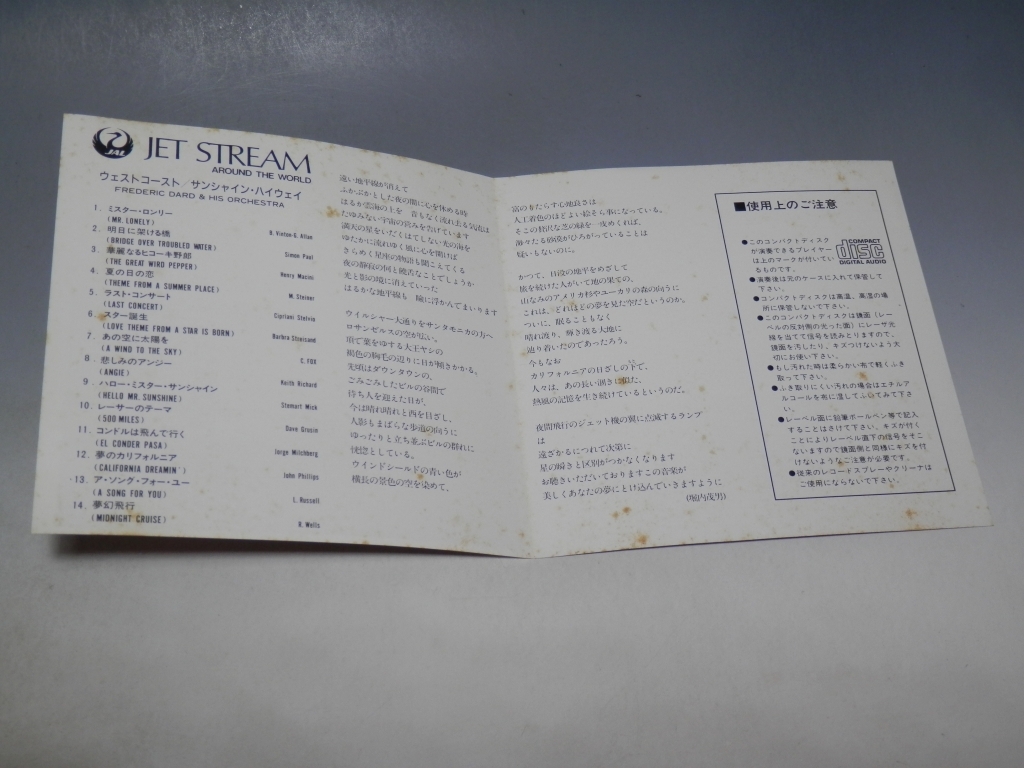 JAL
JET STREAM
AROUND THE WORLD
ウェストコースト/サンシャイン・ハイウェイ
FREDERIC DARD & HIS ORCHESTRA
1. ミスター・ロンリー
(MR. LONELY)
B. Vinton-G. Allan
2. 明日に架ける橋
(BRIDGE OVER TROUBLED WATER)
Simon Paul
3. 華麗なるヒコーキ野郎
(THE GREAT WIRD PEPPER)
Henry Macini
4. 夏の日の恋
(THEME FROM A SUMMER PLACE)
M. Steiner
5. ラスト・コンサート
(LAST CONCERT)
Cipriani Stelvio
6. スター誕生
(LOVE THEME FROM A STAR IS BORN)
Barbra Streisand
7. あの空に太陽を
(A WIND TO THE SKY)
C. FOX
8. 悲しみのアンジー
(ANGIE)
Keith Richard
9. ハロー・ミスター・サンシャイン
(HELLO MR. SUNSHINE)
Stemart Mick
10. レーサーのテーマ
(500 MILES)
Dave Grusin
11. コンドルは飛んで行く
(EL CONDER PASA)
Jorge Milchberg
12. 夢のカリフォルニア
(CALIFORNIA DREAMIN')
John Phillips
13. ア・ソング・フォー・ユー
(A SONG FOR YOU)
L. Russell
14. 夢幻飛行
(MIDNIGHT CRUISE)
R. Wells
遠い地平線が消えて
ふかぶかとした夜の闇に心を休める時
はるか雲海の上を 音もなく流れ去る気流は
たゆみない宇宙の営みを告げています
満天の星をいただくはてしない光の海を
ゆたかに流れゆく風に心を開けば
きらめく星座の物語も聞こえてくる
夜の静寂の何と饒舌なことでしょうか
光と影の境に消えていった
はるかな地平線も 瞼に浮かんでまいります
ウイルシャー大通りをサンタモニカの方へ
ロサンゼルスの空が広い。
頂で葉をゆする大王ヤシの
褐色の胸毛の辺りに日が傾きかかる。
先頃はダウンタウンの、
ごみごみしたビルの谷間で
待ち人を迎えた日が、
今は晴れ晴れと西を目ざし、
人影もまばらな歩道の向うに
ゆったりと立ち並ぶビルの群れに
恍惚としている。
ウインドシールドの青い色が
横長の景色の空を染めて、
富のもたらす心地良さは
人工着色のほどよい絵そら事になっている。
そこの贅沢な芝の緑を一皮めくれば、
疑いもないのに。
かつて、日没の地平をめざして
旅を続けた人がいて地の果ての、
山なみのアメリカ杉やユーカリの森の向うに
これは、どれほどの夢を見た空だというのか。
ついに、眠ることもなく
晴れ渡り、輝き渡る大地に
辿り着いたのであったろう。
今もなお
カリフォルニアの日ざしの下で、
人々は、あの長い渇きに似た、
熱風の記憶を生き続けているというのだ。
夜間飛行のジェット機の翼に点滅するランプ
は
遠ざかるにつれて次第に
星の瞬きと区別がつかなくなります
お聴きいただいておりますこの音楽が
美しくあなたの夢にとけ込んでいきますように
(堀内茂男)
■使用上のご注意
COMPACT
disc
DIGITAL AUDIO
●このコンパクトディスク
が演奏できるプレイヤー
は上のマークが付いてい
るものです。
●演奏後は元のケースに入れて保管して
下さい。
●コンパクトディスクは高温、高湿の場
所に保管しないで下さい。
●このコンパクトディスクは鏡面(レー
ベルの反対側の光った面)にレーザ光
線を当てて信号を読みとりますので、
鏡面を汚したり、キズつけないよう大
切にお使い下さい。
●もし汚れた時は柔らかい布で軽くふき
取って下さい。
●ふき取りにくい汚れの場合はエチルア
ルコールを布に湿してふいてみて下さ
い。
●レーベル面に鉛筆ボールペン等で記入
することはさけて下さい。キズが付く
ことによりレーベル直下の信号をそこ
ないますので鏡面側と同様にキズを付
けないようなご注意が必要です。
●従来のレコードスプレーやクリーナは
ご使用にならないで下さい。